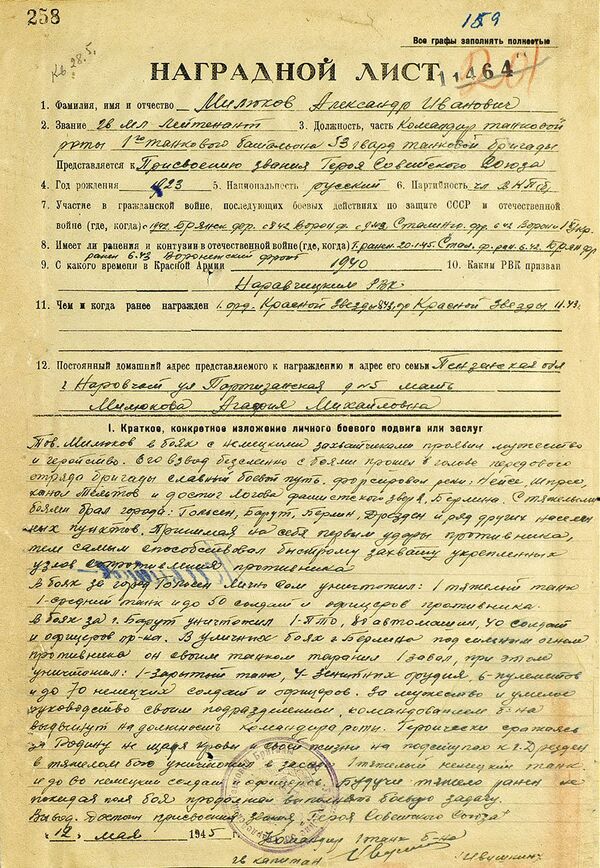 258
159
Все графы заполнять полностью
Кв 28.5.
НАГРАДНОЙ ЛИСТ
11464
1. Фамилия, имя и отчество Милюков Александр Иванович
2. Звание гв мл лейтенант 3. Должность, часть Командир танковой
роты 1го танкового батальона 53 гвард танковой бригады
Представляется к Присвоению звания Героя Советского Союза
4. Год рождения 1923 5. Национальность русский 6. Партийность чл ВКПб
7. Участие в гражданской войне, последующих боевых действиях по защите СССР и отечественной
войне (где, когда) с 1942 Брянск фр.
8. Имеет ли ранения и контузии в отечественной войне (где, когда)
ранен 6.43 Воронежский фронт
9. С какого времени в Красной Армии 1940 10. Каким РВК призван
Наравчицким РВК
11. Чем и когда ранее награжден 1. орд. Красной Звезды Красной Звезды 11.43г
12. Постоянный домашний адрес представляемого к награждению и адрес его семьи Пензенская обл
г Наровчат ул Партизанская д №5 мать
Милюкова Агафия Михайловна
I. Краткое, конкретное изложение личного боевого подвига или заслуг
Тов. Милюков в боях с немецкими захватчиками проявил мужество
и геройство. Его взвод безсменно с боями прошел в голове передового
отряда бригады славный боевой путь, форсировал реки: Нейсе, Шпрее,
канал Тельтов и достиг логова фашистского зверя, Берлина. С тяжелыми
боями брал города: Гольсен, Барут, Берлин, Дрезден и ряд других населен
ных пунктов. Принимая на себя первым удары противника,
тем самым способствовал быстрому захвату укрепленных
узлов сопротивления противника
В боях за город Гольсен лично сам уничтожил: 1 тяжелый танк
1-средний танк и до 50 солдат и офицеров противника.
В боях за г. Барут уничтожил 1-ПТО, автомашин, 40 солдат
и офицеров пр-ка. В уличных боях г. Берлина под сильным огнем
противника он своим танком таранил 1 завал, при этом
уничтожил: 1-зарытый танк, 4 зенитных орудия, 6-пулеметов
и до 70 немецких солдат и офицеров. За мужество и умелое
руководство своим подразделением, командованием б-на
выдвинут на должность командира роты. Героически сражаясь
за Родину не щадя крови и своей жизни на подступах к г. Дрезден
в тяжелом бою уничтожил в засаде 1 тяжелый немецкий танк
и до немецких солдат и офицеров. Будучи тяжело ранен не
покидая поля боя продолжал выполнять боевую задачу.
Вывод. Достоин присвоения звания "Героя Советского Союза"
12 мая 1945
Командир 1 танк б-на
гв капитан